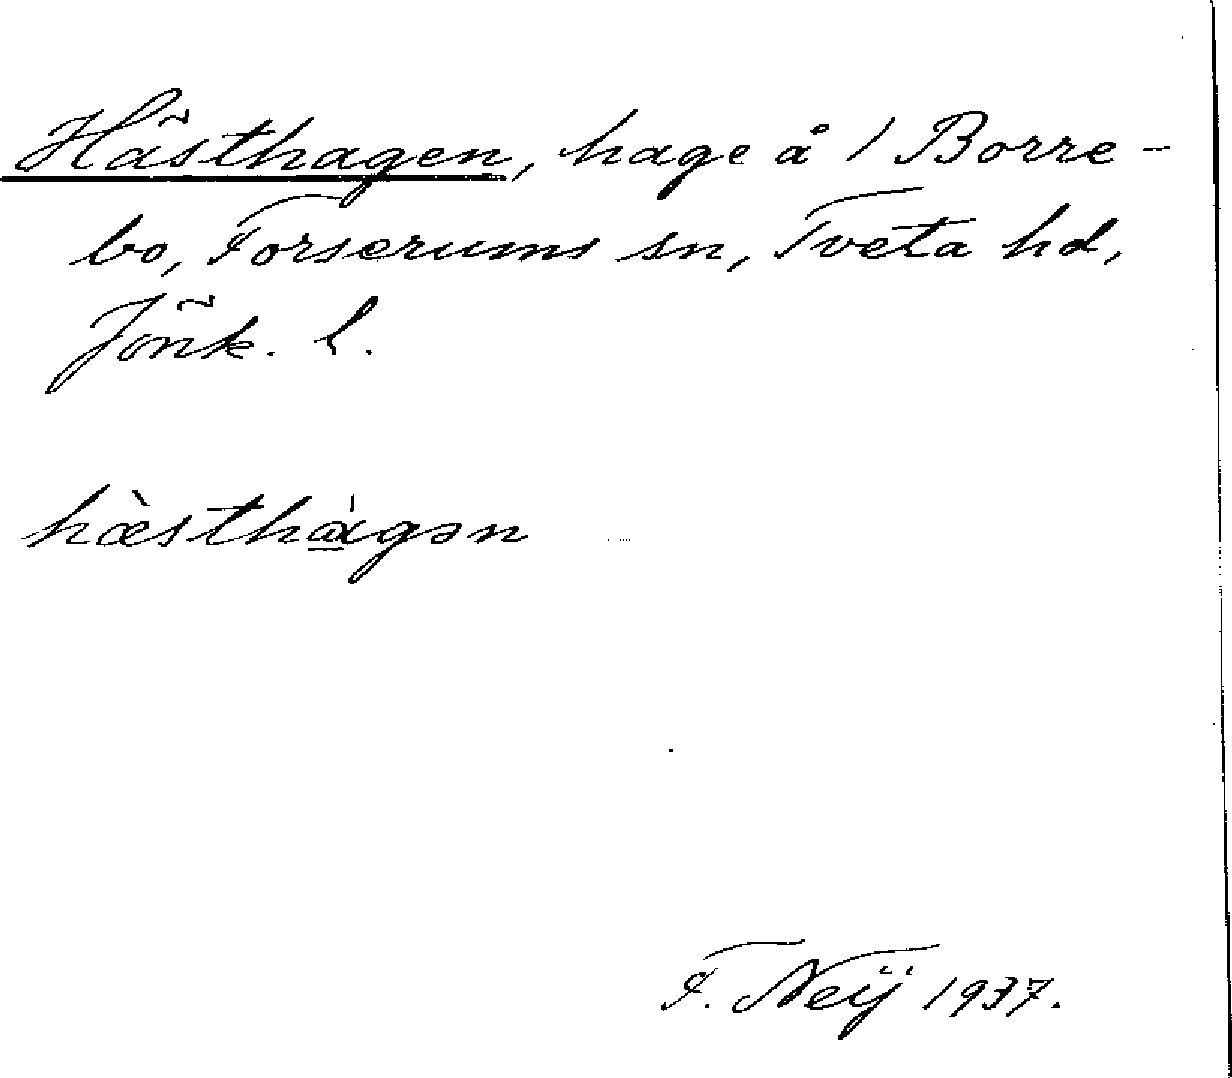 Hästhagen, hage å 1 Borre-
bo, Forserums sn, Tveta hd,
Jönk. l.
hæ̀sthàgən
F. Neij 1937.